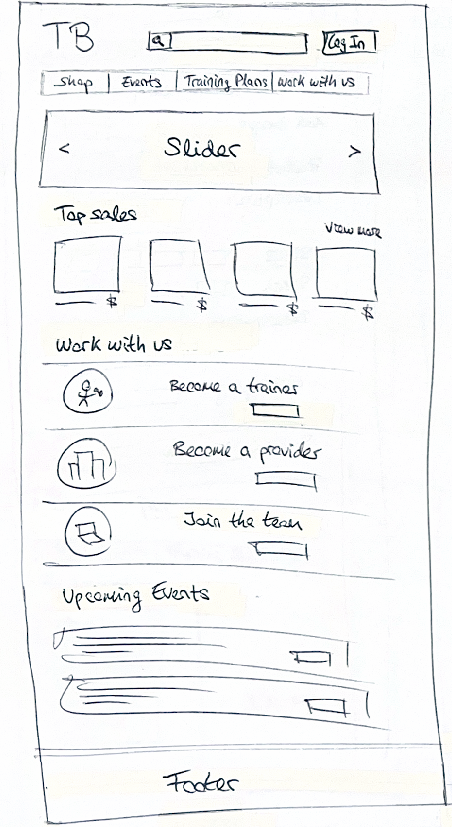 TB
Log In
Shop | Events | Training Plans | Work with us
< Slider >
Top sales
View more
$ $ $ $
Work with us
Become a trainer
Become a provider
Join the team
Upcoming Events
Footer